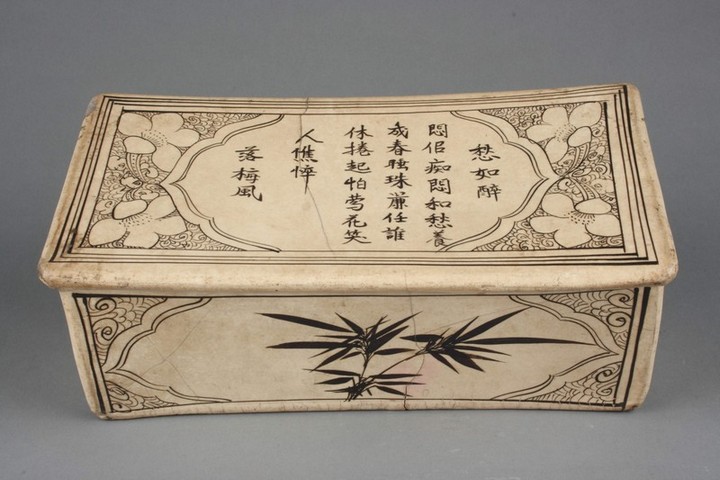 愁如醉
悶佀痴悶和愁養
成春睡珠簾任誰
休捲起怕鶯花笑
人憔悴
落梅風